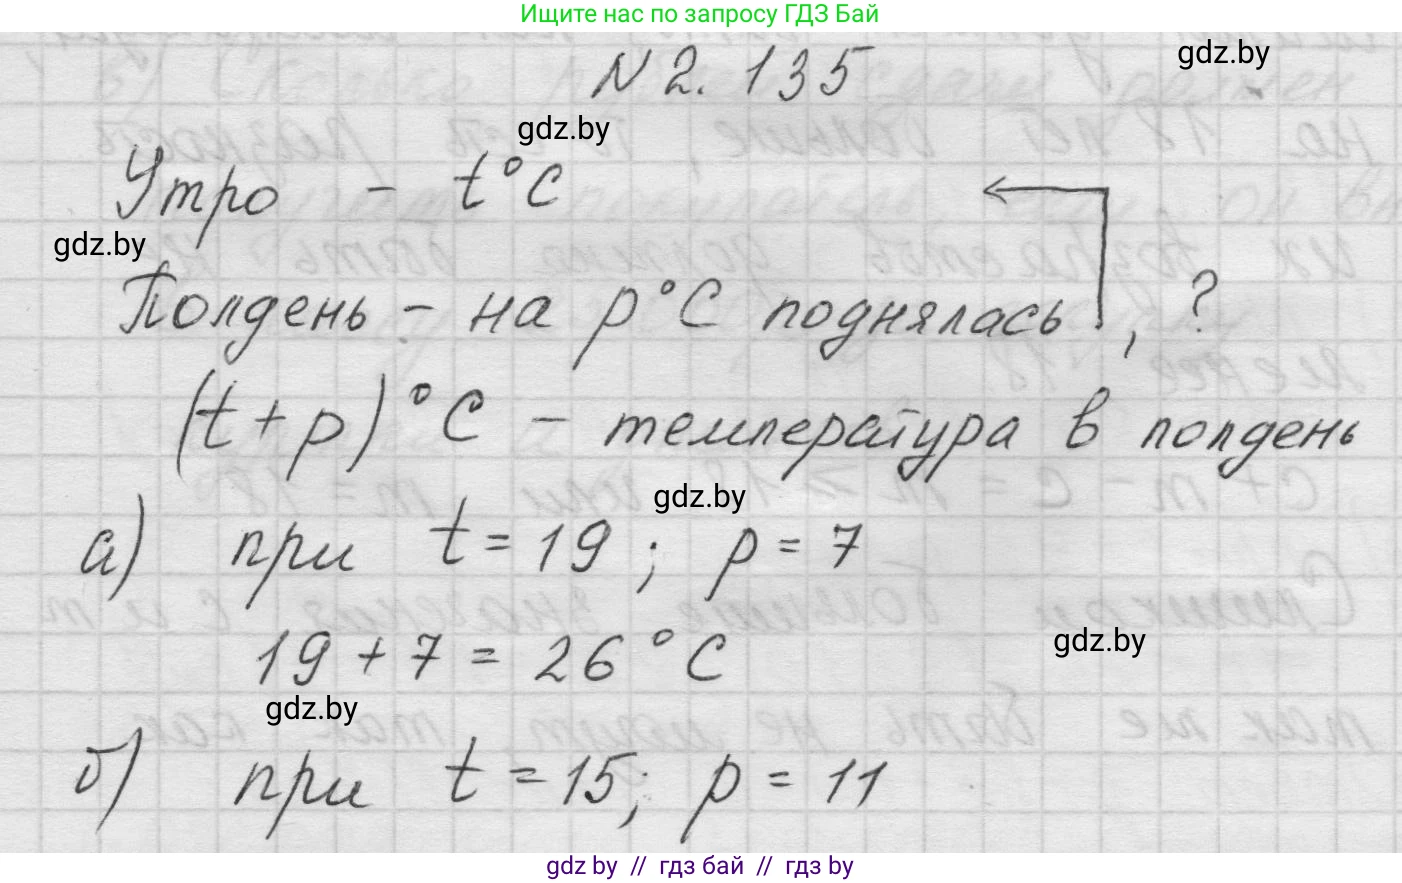 Ищите нас по запросу ГДЗ Бай
N 2.135
gdz.by
gdz.by
Утро - t°C
gdz.by
Полдень - на p°C поднялась, ?
(t+p)°C - температура в полдень
gdz.by
а) при t=19; p=7
19+7=26°C
gdz.by
gdz.by
б) при t=15; p=11
gdz.by // гдз бай // гдз by